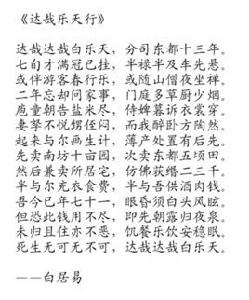 《达哉乐天行》
达哉达哉白乐天，分司东都十三年。
七旬才满冠已挂，半禄半及车先悬。
或伴游客春行乐，或随山僧夜坐禅。
二年忘却问家事，门庭多草厨少烟。
庖童朝告盐米尽，侍婢暮诉衣裳穿。
妻孥不悦甥侄闷，而我醉卧方陶然。
起来与尔画生计，薄产处置有后先。
先卖南坊十亩园，次卖东都五顷田。
然后兼卖所居宅，仿佛获缗二三千。
半与尔充衣食费，半与吾供酒肉钱。
吾今已年七十一，眼昏须白头风眩。
但恐此钱用不尽，即先朝露归夜泉。
未归且住亦不恶，饥餐乐饮安稳眠。
死生无可无不可，达哉达哉白乐天。
——白居易